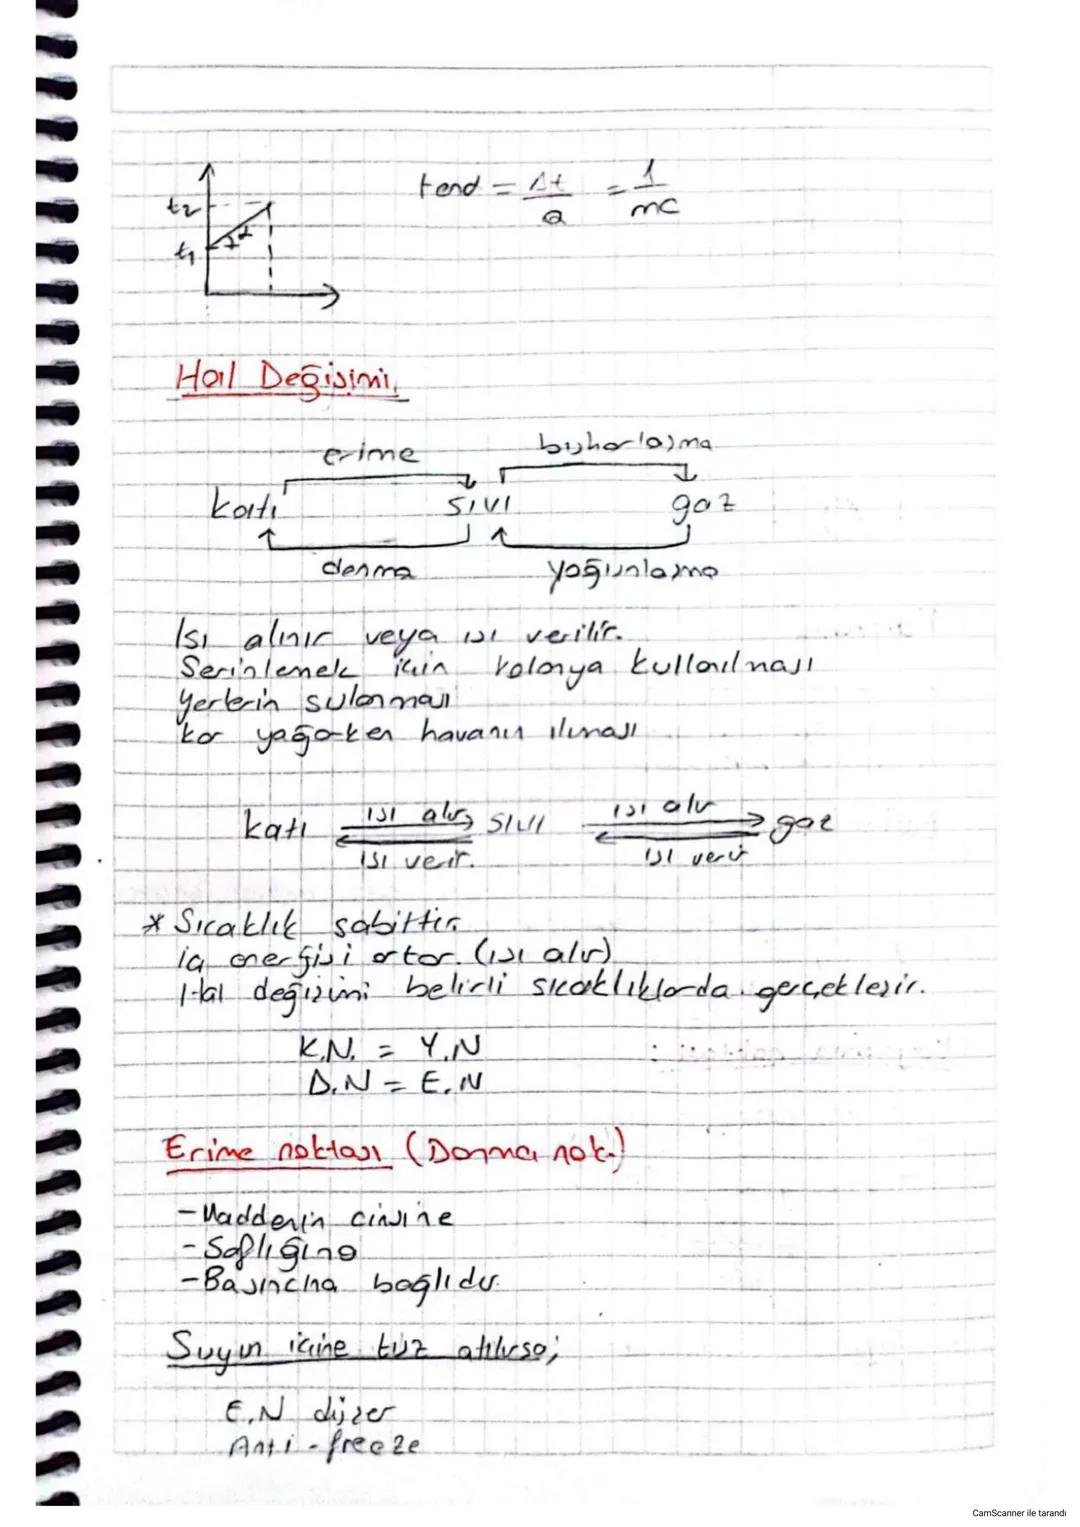 t2
t1
α
tanα = Δt/Q = 1/mc
Hal Değişimi
erime buharlaşma
katı sıvı gaz
donma yoğunlaşma
Isı alınır veya ısı verilir.
Serinlemek için kolonya kullanılması
Yerlerin sulanması
kar yağarken havanın ılıması
katı ısı alır sıvı ısı alır gaz
ısı verir. ısı verir
* Sıcaklık sabittir.
iç enerjisi artar. (ısı alır)
Hal değişimi belirli sıcaklıklarda gerçekleşir.
K.N. = Y.N
D.N = E.N
Erime noktası (Donma nok.)
-Maddenin cinsine
-Saflığına
-Basıncına bağlıdır.
Suyun içine tuz atılırsa;
E.N düşer
Anti-freeze
CamScanner ile tarandı